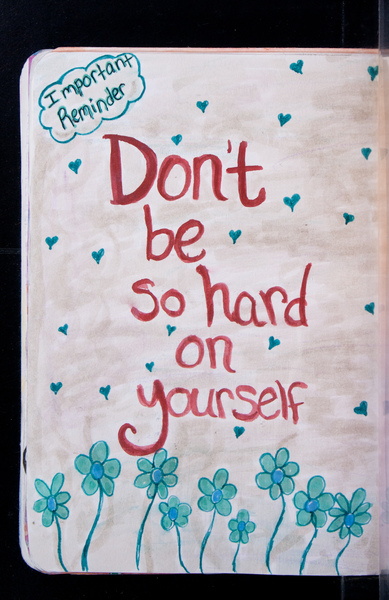 Important
Reminder
Don't
be
so hard
on
yourself